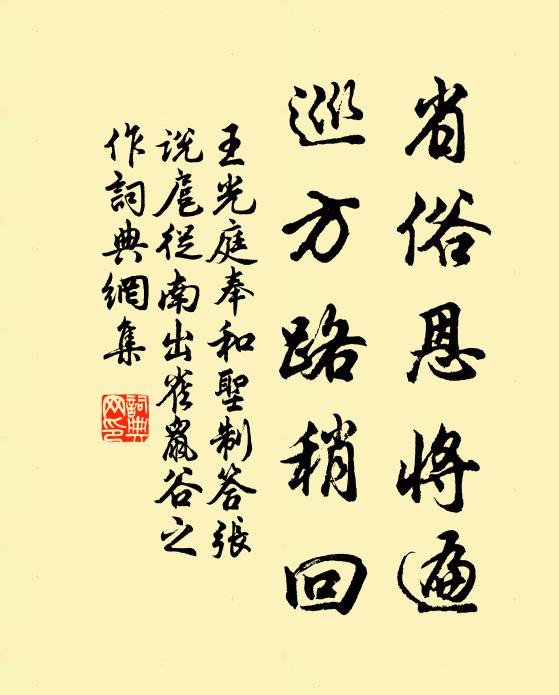 省俗恩将遍
巡方路稍回
王光庭奉和聖制答張
説扈從南出雀鼠谷之
作詞典網集
詞典網印